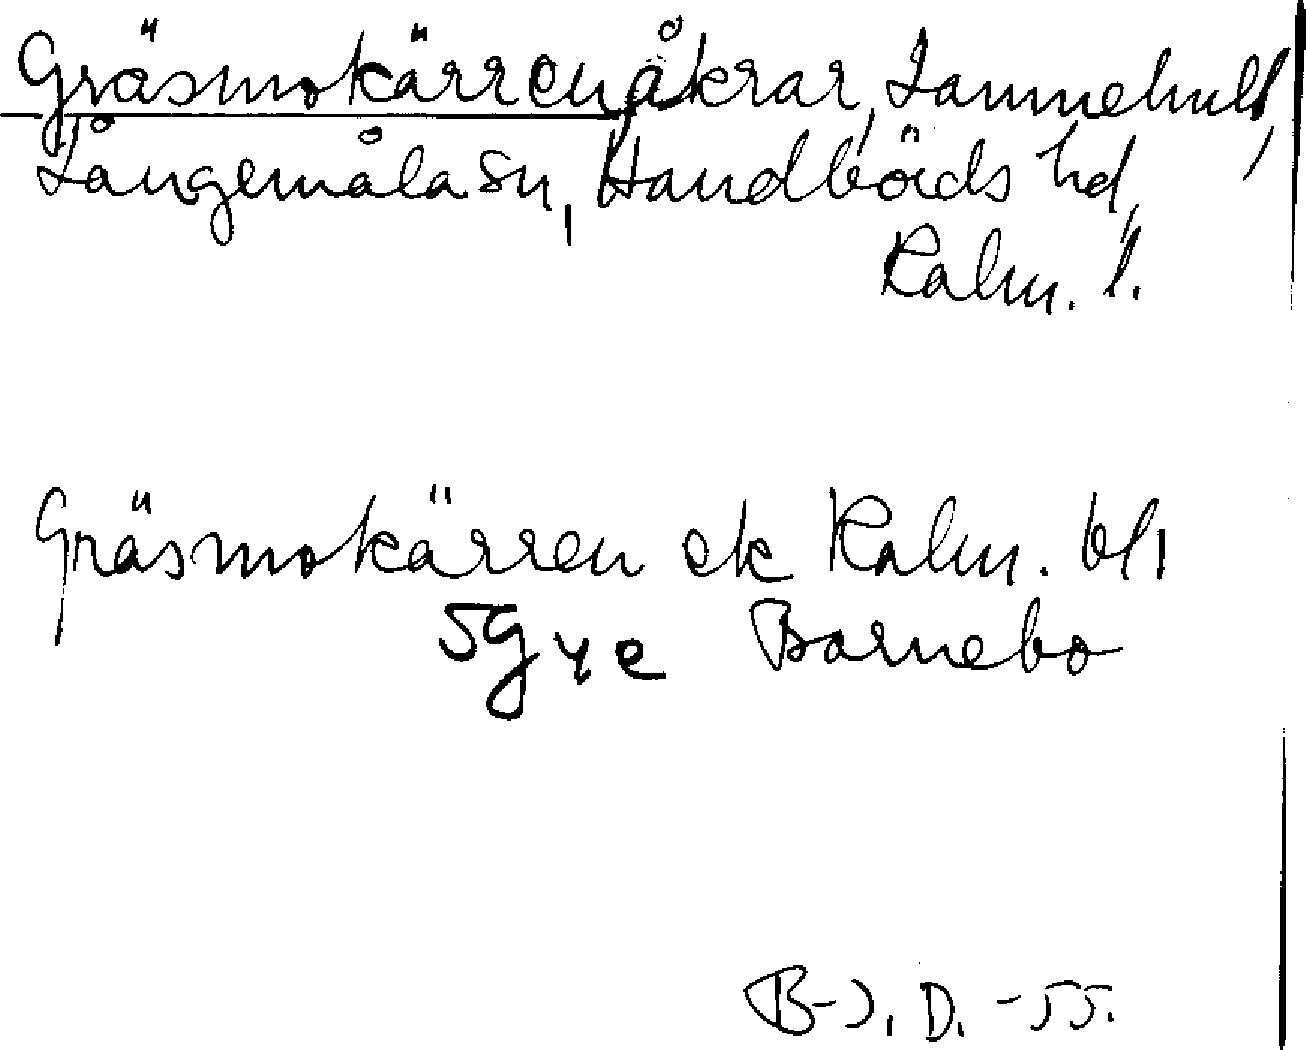 Gräsmokärren, åkrar, Lammehult,
Långemåla sn, Handbörds hd,
Kalm. l.
Gräsmokärren ek Kalm. bl 1
5G 4 e Barnebo
B-J. D. -55.